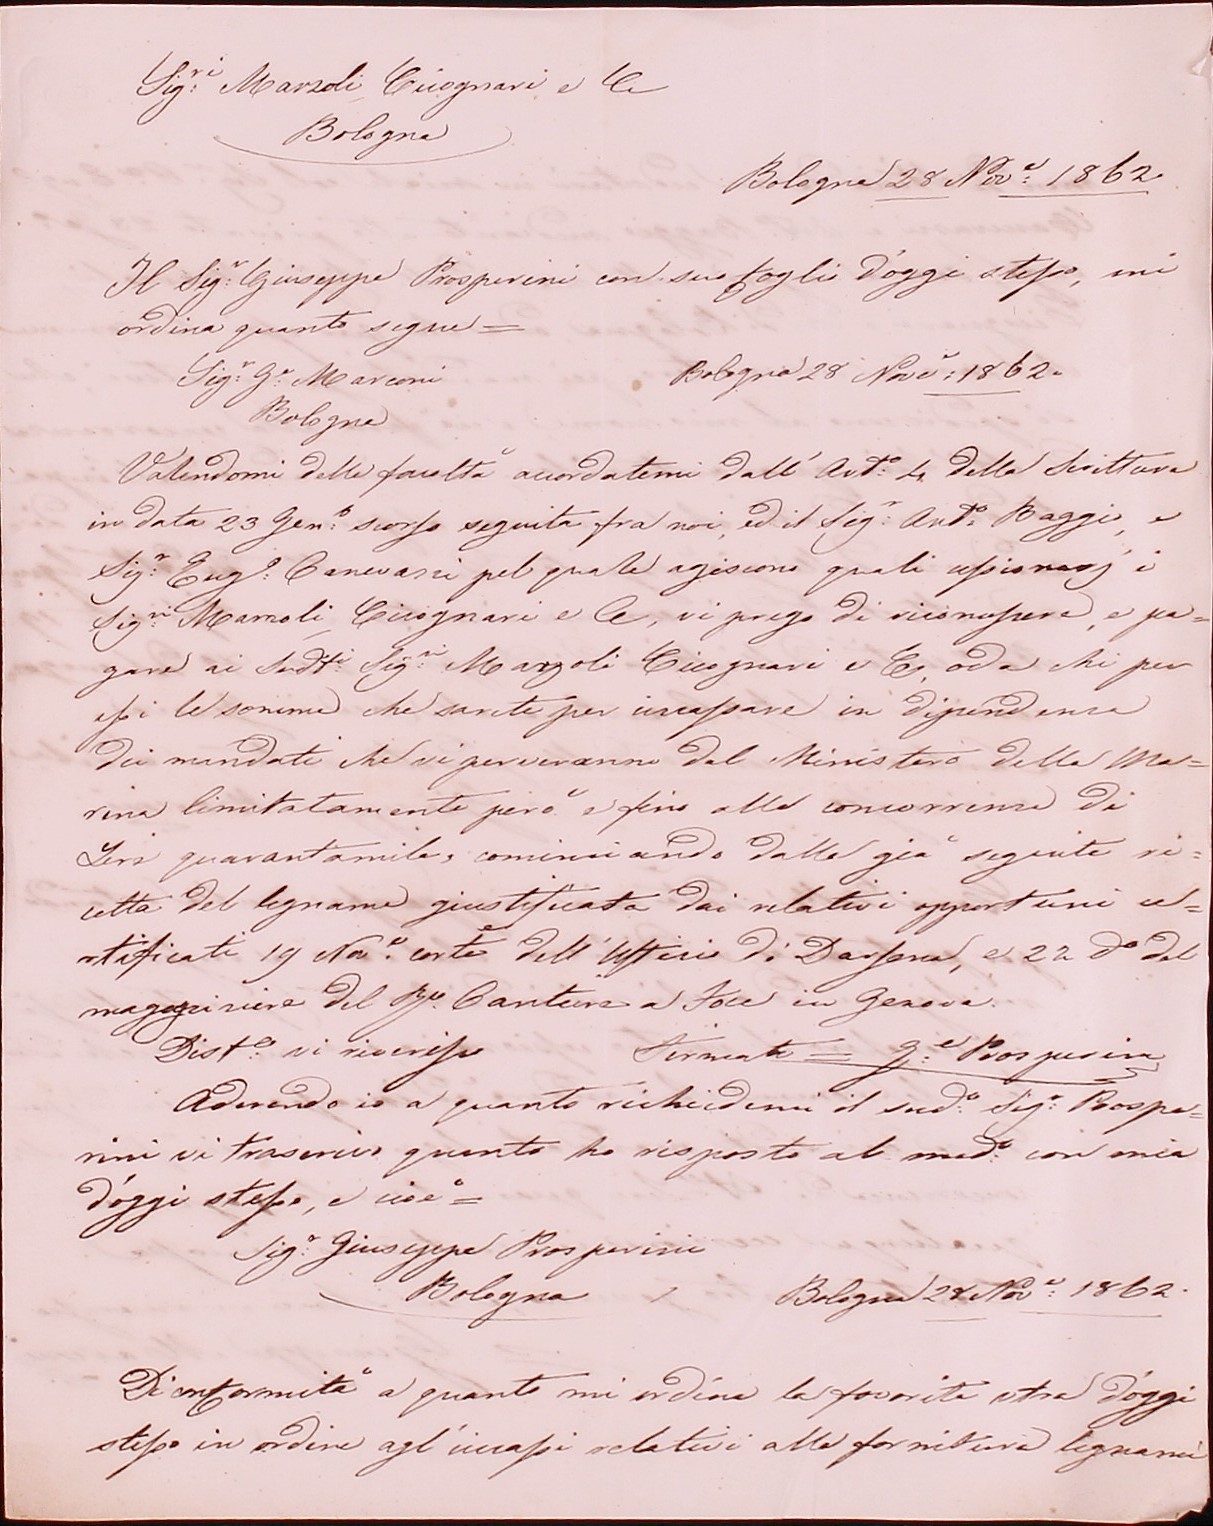 Sig.ri Marzoli, Cicognari e C.
Bologna
Bologna 28 Nov.e 1862.
Il Sig.r Giuseppe Prosperini con suo foglio d'oggi stesso, mi
ordina quanto segue =
Sig.r G.e Marconi
Bologna 28 Nov.e 1862.
Bologna
Valendomi della facoltà accordatemi dall' Art.o 4 della Scrittura
in data 23 Gen.o scorso seguita fra noi, ed il Sig.r Ant.o Baggio, e
Sig.r Eug.o Canevassi pel quale agiscono quali cessionarj i
Sig.ri Marzoli, Cicognari e C., vi prego di riconoscere, e pa=
gare ai sudt.i Sig.ri Marzoli Cicognari e C., od a chi per
essi le somme che sarete per incassare in dipendenza
dei mandati che vi perveranno dal Ministero della Ma=
rina limitatamente però e fino alla concorrenza di
Lire quarantamila, cominciando dalla già seguita ri=
cetta del legname giustificata dai relativi opportuni ce=
rtificati 19 Nov.e corte dell' Ufficio di Darsena, e 22 d.o del
magazziniere del R.o Cantiere a Foce in Genova.
Dist.o vi riverisco Firmato = G.e Prosperini
Aderendo io a quanto richiedemi il sud.o Sig.r Prospe=
rini vi trascrivo quanto ho risposto al med.o con mia
d'oggi stesso, e cioè =
Sig.r Giuseppe Prosperini
Bologna Bologna 28 Nov.e 1862.
Di conformità a quanto mi ordina la favorita vtra d'oggi
stesso in ordine agl'incassi relativi alla fornitura legnami